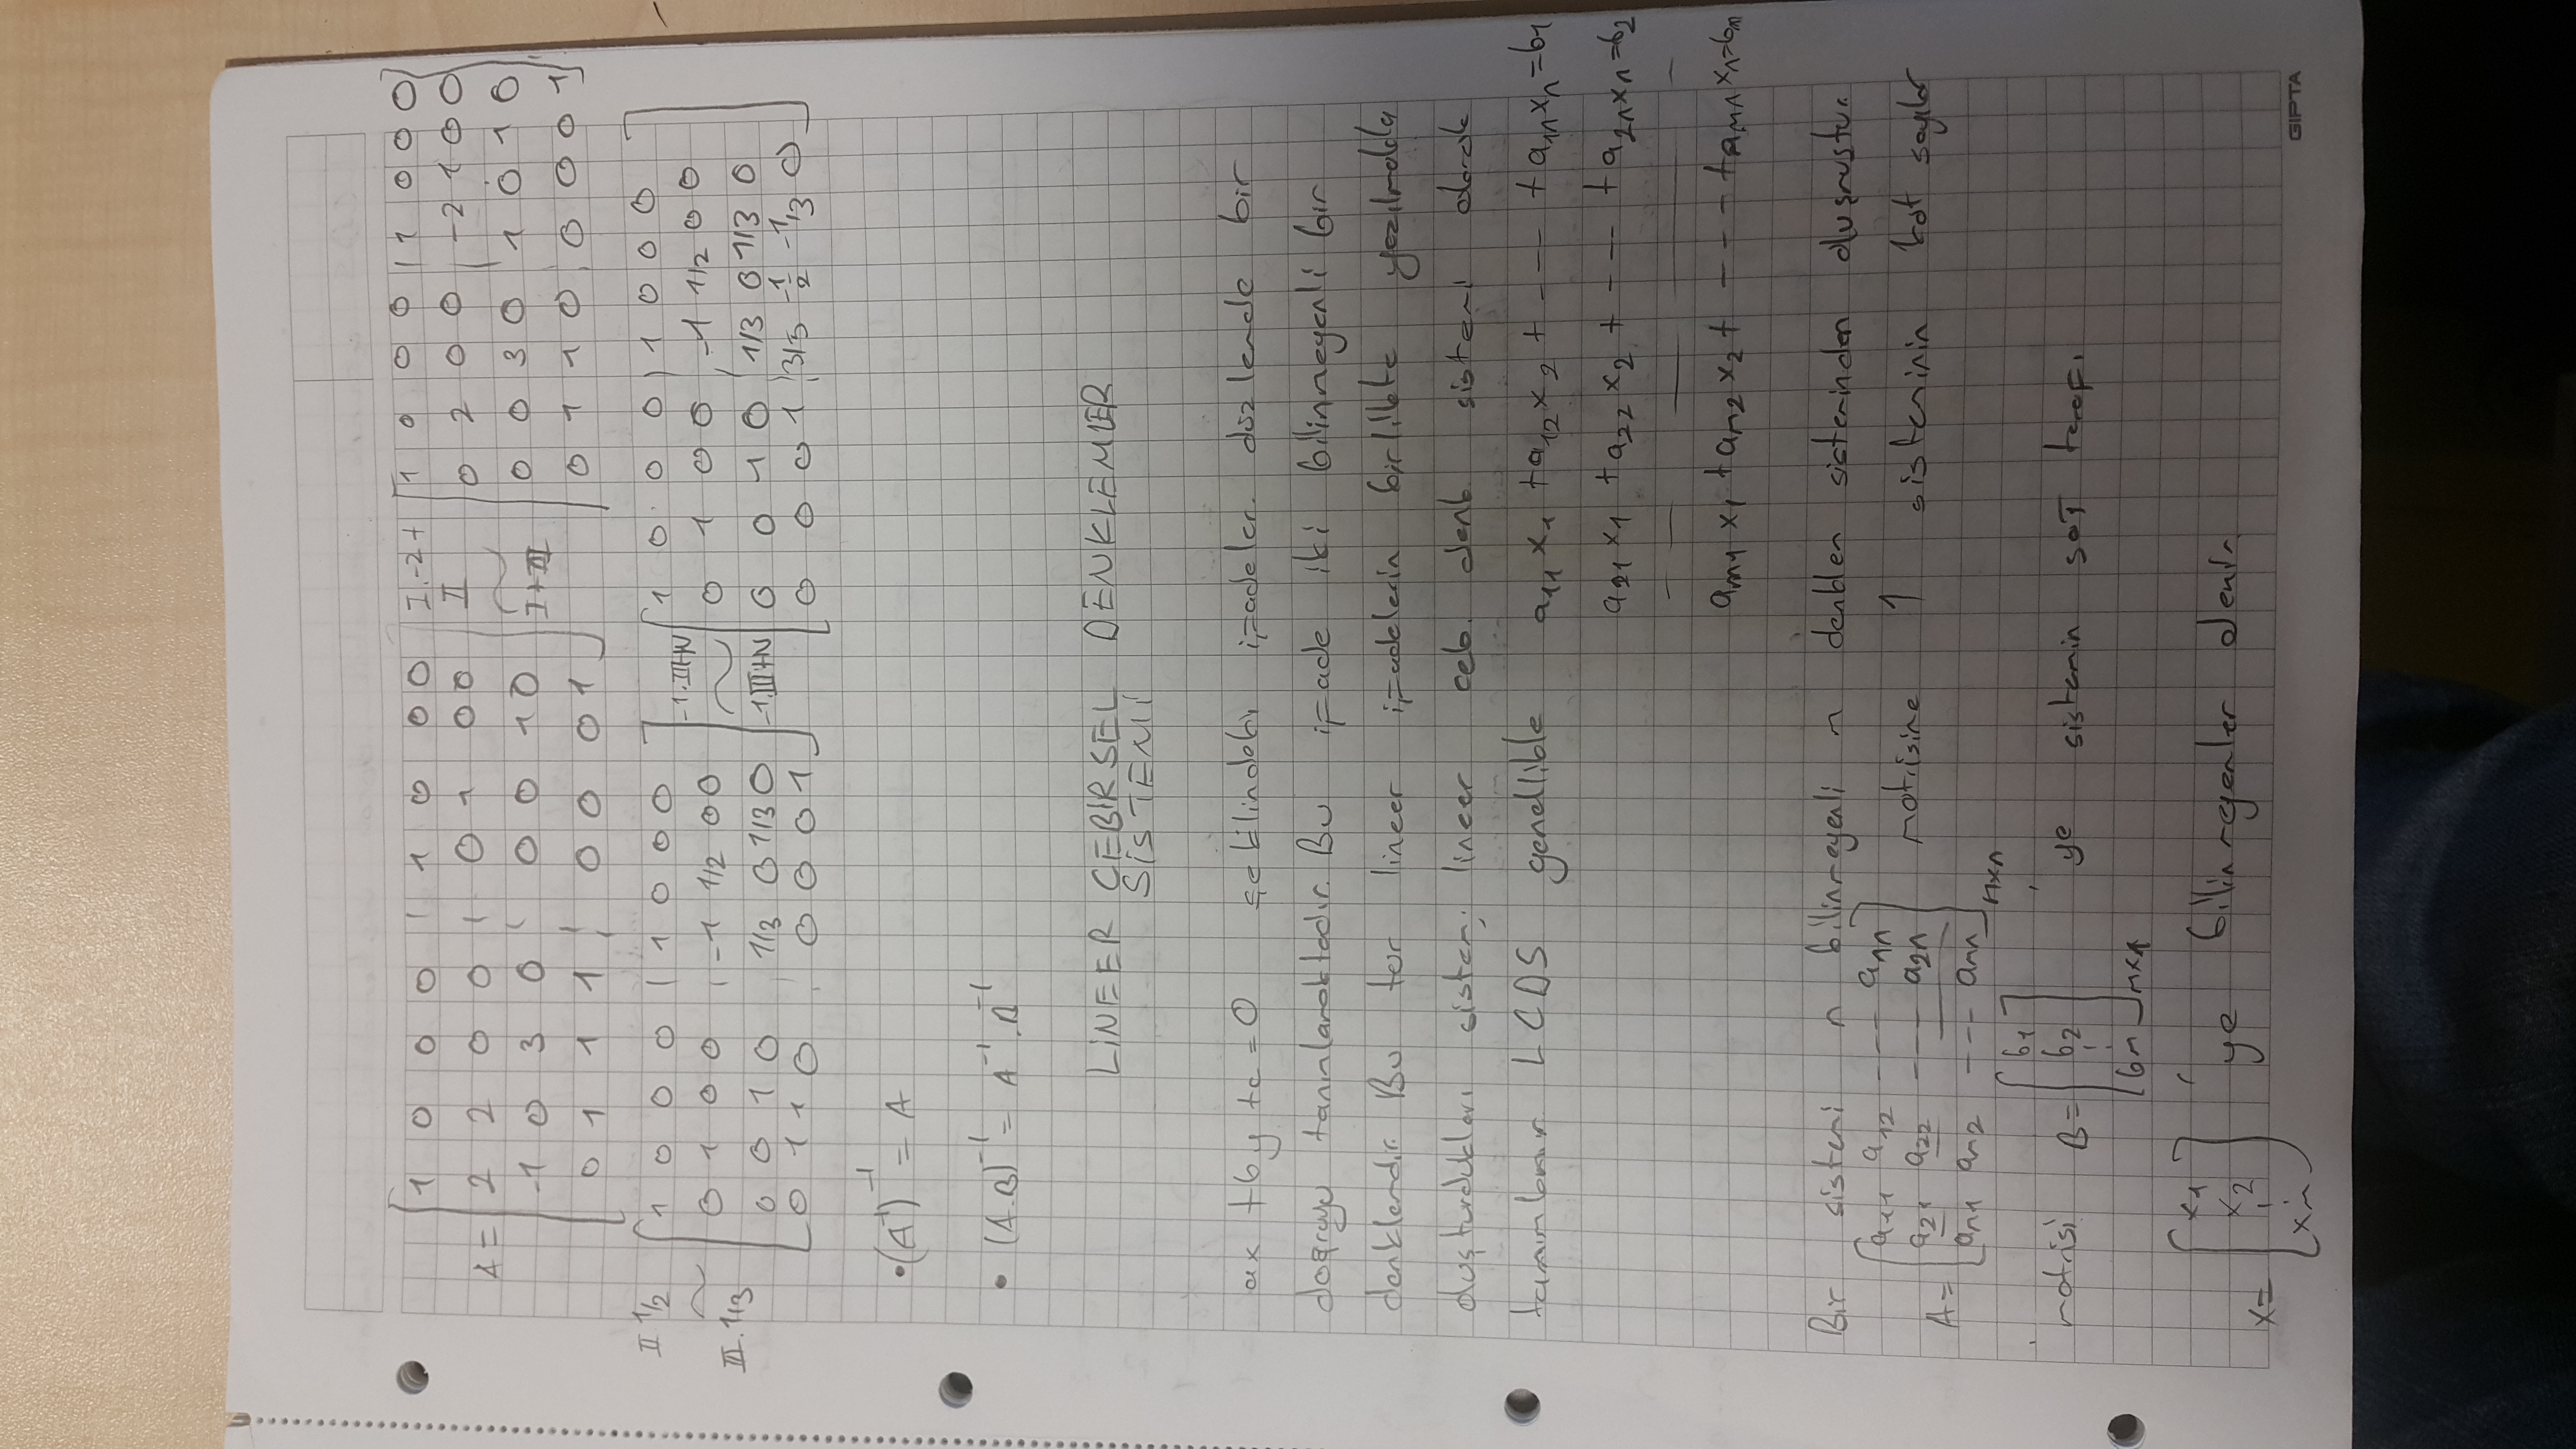 A = [ 1 0 0 0 | 1 0 0 0 ] I.-2+ [ 1 0 0 0 | 1 0 0 0 ]
2 2 0 0 | 0 1 0 0 II 0 2 0 0 | -2 1 0 0
-1 0 3 0 | 0 0 1 0 ~ 0 0 3 0 1 0 1 0
0 1 1 1 | 0 0 0 1 I+III 0 1 1 0 | 0 0 0 1
II 1/2 [ 1 0 0 0 | 1 0 0 0 ] -1.II+IV [ 1 0 0 0 | 1 0 0 0 ]
~ 0 1 0 0 | -1 1/2 0 0 ~ 0 1 0 0 | -1 1/2 0 0
III.1/3 0 0 1 0 1/3 0 1/3 0 -1.III+IV 0 0 1 0 | 1/3 0 1/3 0
0 1 1 0 | 0 0 0 1 0 0 0 1 | 3/5 -1/2 -1/3 0
• (A⁻¹)⁻¹ = A
• (A.B)⁻¹ = A⁻¹.B⁻¹
LİNEER CEBİRSEL DENKLEMLER
SİSTEMİ
ax + by + c = 0 şeklindeki ifadeler düzlemde bir
doğruyu tanımlamaktadır. Bu ifade iki bilinmeyenli bir
denklemdir. Bu tür lineer ifadelerin birlikte yazılmakla
oluşturdukları sistem; lineer ceb. denk. sistemi olarak
tanımlanır LCDS genellikle a₁₁x₁ + a₁₂x₂ + --- + a₁ₙxₙ = b₁
a₂₁x₁ + a₂₂x₂ + --- + a₂ₙxₙ = b₂
aₘ₁x₁ + aₘ₂x₂ + --- + aₘₙxₙ = bₘ
Bir sistemi n bilinmeyenli n denklem sisteminden oluşmuştur.
A = [ a₁₁ a₁₂ --- a₁ₙ ] matrisine 1 sisteminin kat sayılar
a₂₁ a₂₂ --- a₂ₙ
aₙ₁ aₙ₂ --- aₙₙ nxn
matrisi B = [ b₁ b₂ bₙ ] nx1 'ye sistemin sağ tarafı
x = [ x₁ x₂ xₙ ] 'ye bilinmeyenler denir.
GIPTA